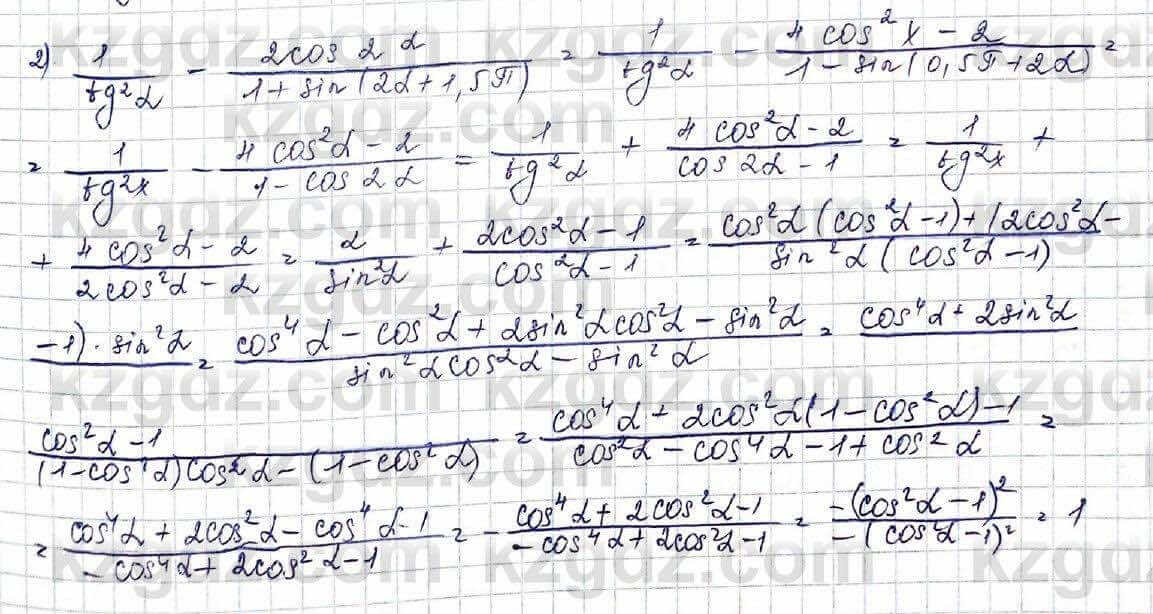 2) 1/tg²α - 2cos 2α/1 + sin(2α + 1,5π) = 1/tg²α - 4 cos²x - 2/1 - sin(0,5π + 2α) =
= 1/tg²x - 4 cos²α - 2/1 - cos 2α = 1/tg²α + 4 cos²α - 2/cos 2α - 1 = 1/tg²x +
+ 4 cos²α - 2/2cos²α - 2 = α/sin²α + 2cos²α - 1/cos²α - 1 = cos²α (cos²α - 1) + (2cos²α -/sin²α (cos²α - 1)
-1) · sin²α = cos⁴α - cos²α + 2sin²α cos²α - sin²α/sin²α cos²α - sin²α = cos⁴α + 2sin²α
cos²α - 1/(1 - cos²α) cos²α - (1 - cos²α) = cos⁴α + 2cos²α (1 - cos²α) - 1/cos²α - cos⁴α - 1 + cos²α =
= cos⁴α + 2cos²α - cos⁴α - 1/- cos⁴α + 2cos²α - 1 = - cos⁴α + 2cos²α - 1/- cos⁴α + 2cos²α - 1 = -(cos²α - 1)²/-(cos²α - 1)² = 1
kzgdz.com